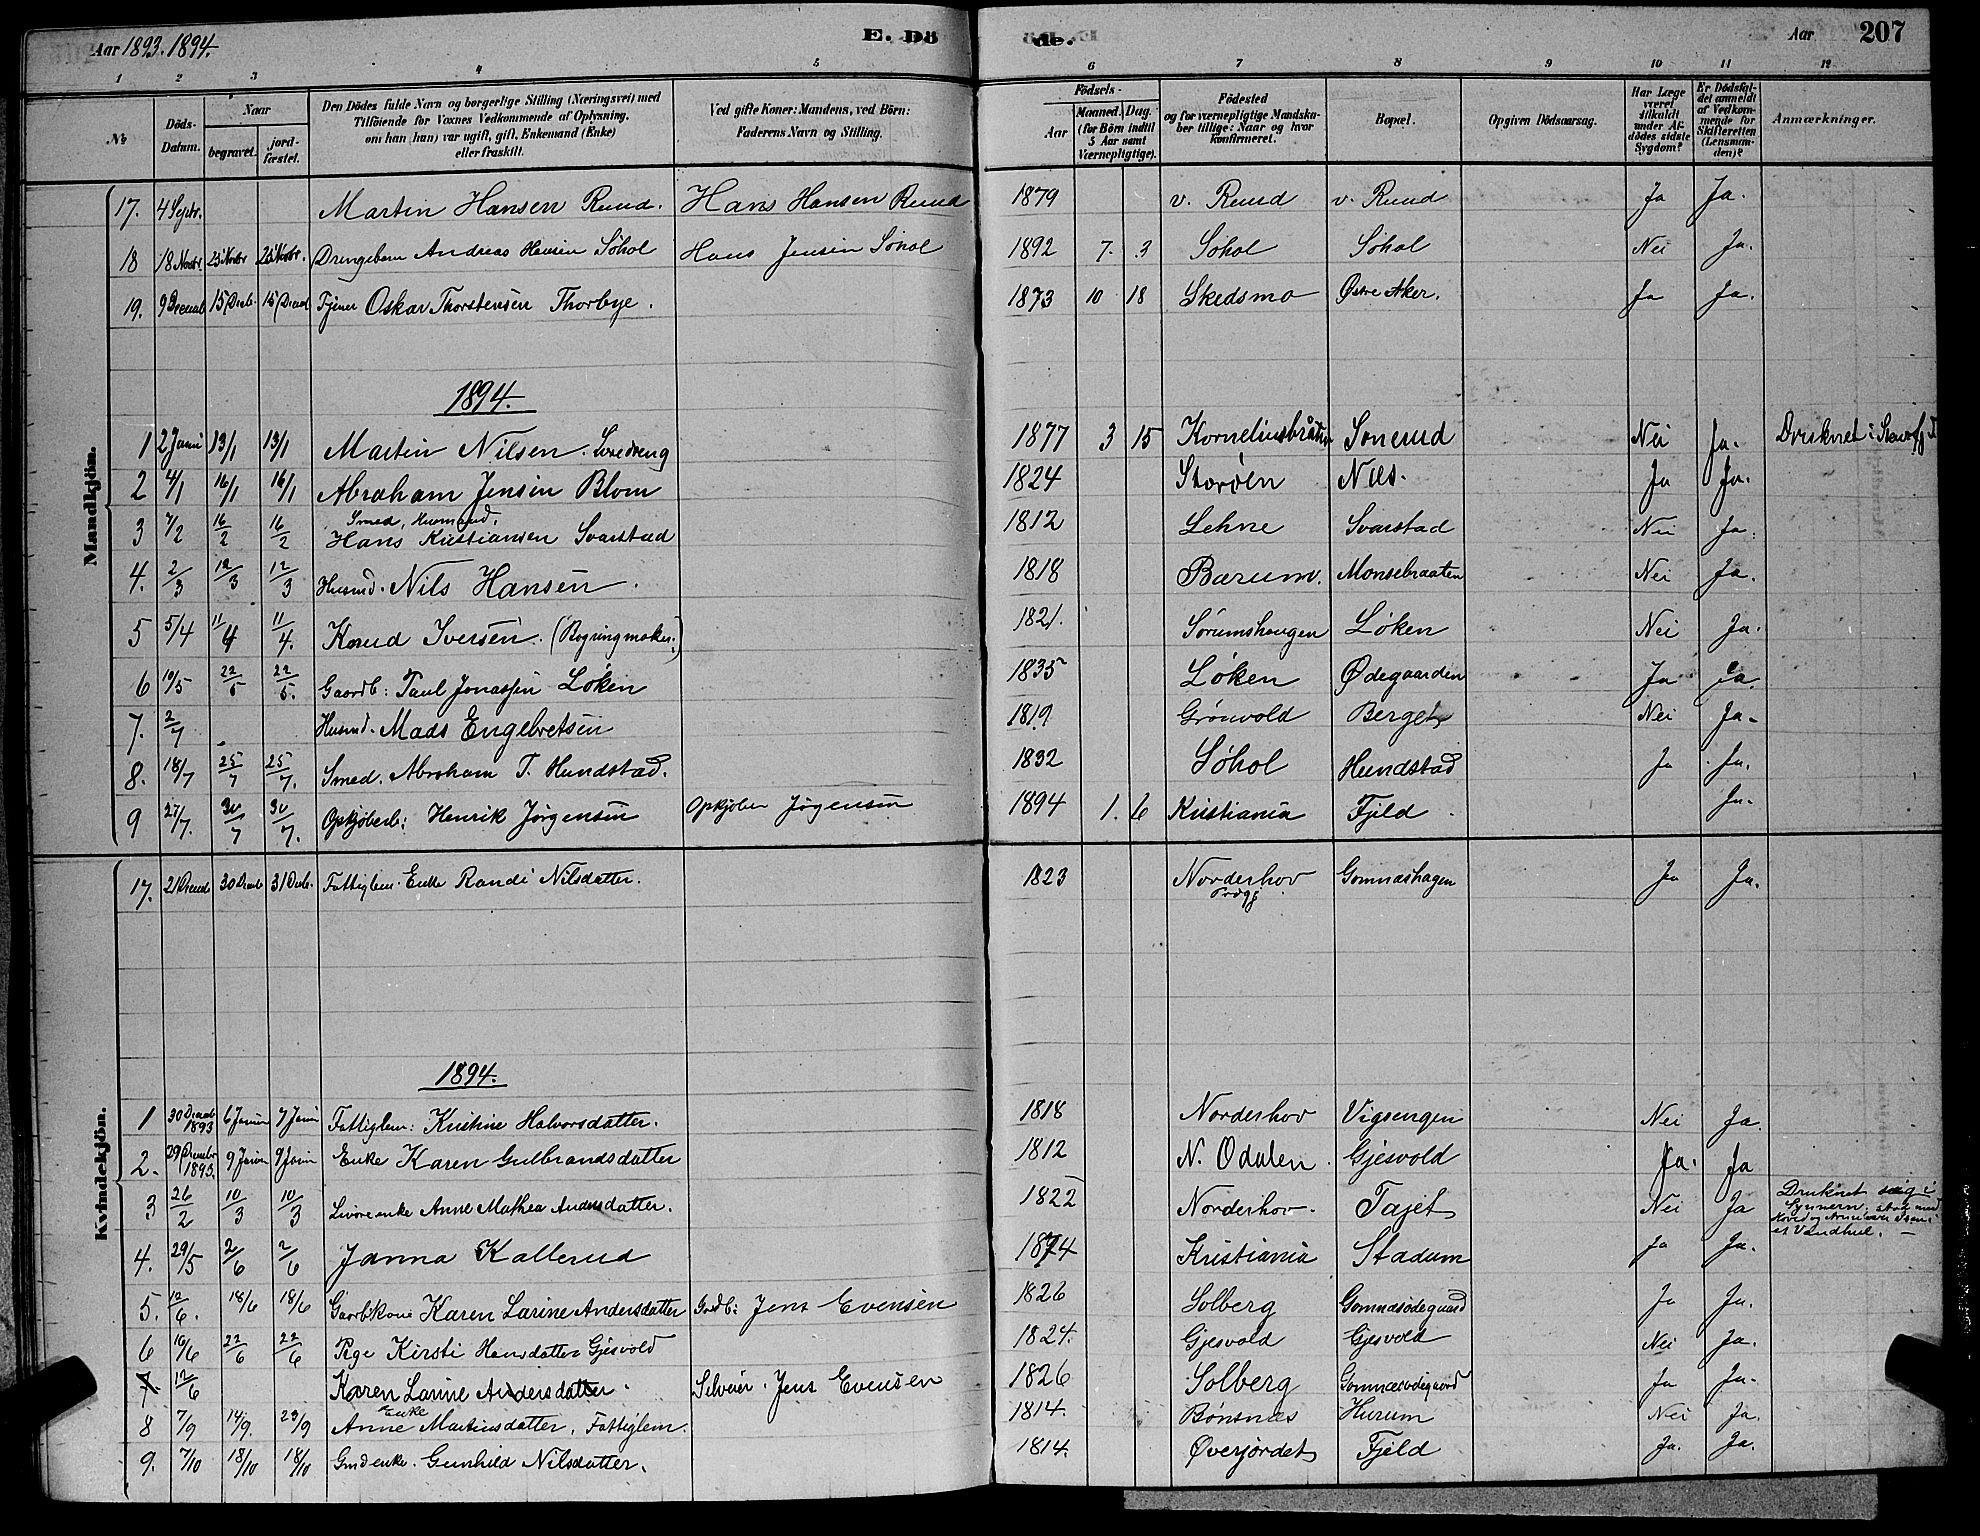 Aar 1893. 1894.
E. Dö
de.
Aar
207
1 2 3 4 5 6 7 8 9 10 11 12
No
Döds-
Datum.
Naar
begravet.
jord-
fæstet.
Den Dödes fulde Navn og borgerlige Stilling (Næringsvei) med
Tilföiende for Voxnes Vedkommende af Oplysning,
om han (hun) var ugift, gift, Enkemand (Enke)
eller fraskilt.
Ved gifte Koner: Mandens, ved Börn:
Faderens Navn og Stilling.
Födsels-
Aar
Maaned. Dag.
(for Börn indtil
5 Aar samt
Værnepligtige).
Födested
og for værnepligtige Mandska-
ber tillige: Naar og hvor
konfirmeret.
Bopæl.
Opgiven Dödsaarsag.
Har Læge
været
tilkaldt
under Af-
dödes sidste
Sygdom?
Er Dödsfal-
det anmeldt
af Vedkom-
mende for
Skifteretten
(Lensman-
den)?
Anmærkninger.
Mandkjön.
17. 4 Septr. Martin Hansen Ruud. Hans Hansen Ruud 1879 v. Ruud v. Ruud Ja Ja.
18 18 Novbr 25 Novbr 25 Novbr. Drengebarn Andreas Hansen Söhol Hans Jensen Söhol 1892 7. 3 Söhol Söhol Nei Ja.
19. 9 Decemb 15 Decb. 15 Decemb Tjener Oskar Thorstensen Thorbye. 1873 10 18 Skedsmo Østre Aker. Ja Ja.
1894.
1 2 Janu 13/1 13/1 Martin Nilsen. 1877 3 15 Korneliusbråten Sonerud Nei Ja. Druknet i
2 4/1 16/1 16/1 Abraham Jensen Blom 1824 Storöen Næs. Ja Ja.
Smed, Husmand.
3 7/2 16/2 16/2 Hans Kristiansen Svarstad 1812 Lehne Svarstad Nei Ja.
4. 2/3 12/3 12/3 Husmd. Nils Hansen. 1818 Bærum. Monsebraaten Nei Ja.
5 5/4 11/4 11/4. Knud Iversen. (Bogringmaker.) 1821. Sörumshaugen Löken Nei Ja.
6 10/5 22/5 22/5. Gaardb: Paul Jonassen Löken 1835 Löken Ødegaarden Ja Ja.
7. 2/7 Husmd. Mads Engebretsen 1819 Grönvold Berget Nei Ja.
8. 18/7 25/7 25/7. Smed. Abraham T. Hundstad. 1832 Söhol Hundstad Ja Ja.
9 27/7. 30/7 30/7. Opkjöberb: Henrik Jörgensen Opkjöber Jörgensen 1894 1. 6 Kristiania Fjeld Ja.
Kvindekjön.
17. 21 Decemb 30 Decemb 31 Decb. Fattiglem. Enke Randi Nilsdatter. 1823 Norderhov Gomnæshagen Ja Ja.
1894.
1 30 Decemb 1893 6 Januar 7 Janu Fattiglem: Kristine Halvorsdatter. 1818 Norderhov Vigsengen Nei Ja.
2. 29 Decembr 1893. 9 Januar 9 Janu Enke Karen Gulbrandsdatter 1812 N. Odalen. Gjesvold Ja. Ja
3 26/2 10/3 10/3 Anne Mathea Andersdatter. 1822 Norderhov. Tajet Nei Ja Druknet sig i
Synnern, stod med
Hoved og Arme i
et Vandhul. —
4. 29/5 2/6 2/6 Janna Kallerud 1874 Kristiania Stadum Ja Ja.
5. 12/6. 18/6 18/6 Gaardbkone Karen Larine Andersdatter Gaardb: Jens Evensen 1826 Solberg Gomnæsödegaard Ja Ja.
6 16/6 22/6 22/6 Pige Kirsti Hansdatter Gjesvold 1824. Gjesvold Gjesvold Nei Ja.
7 12/6 Karen Larine Andersdatter. Selveier. Jens Evensen 1826 Solberg Gomnæsödegaard Ja Ja.
Enke
8 7/9 14/9. 23/9 Anne Martinsdatter, Fattiglem. 1814. Bönsnæs Hurum Nei Ja.
9. 7/10 18/10 18/10 Gmdenke. Gunhild Nilsdatter. 1814. Øverjordet Fjeld Ja. Ja.